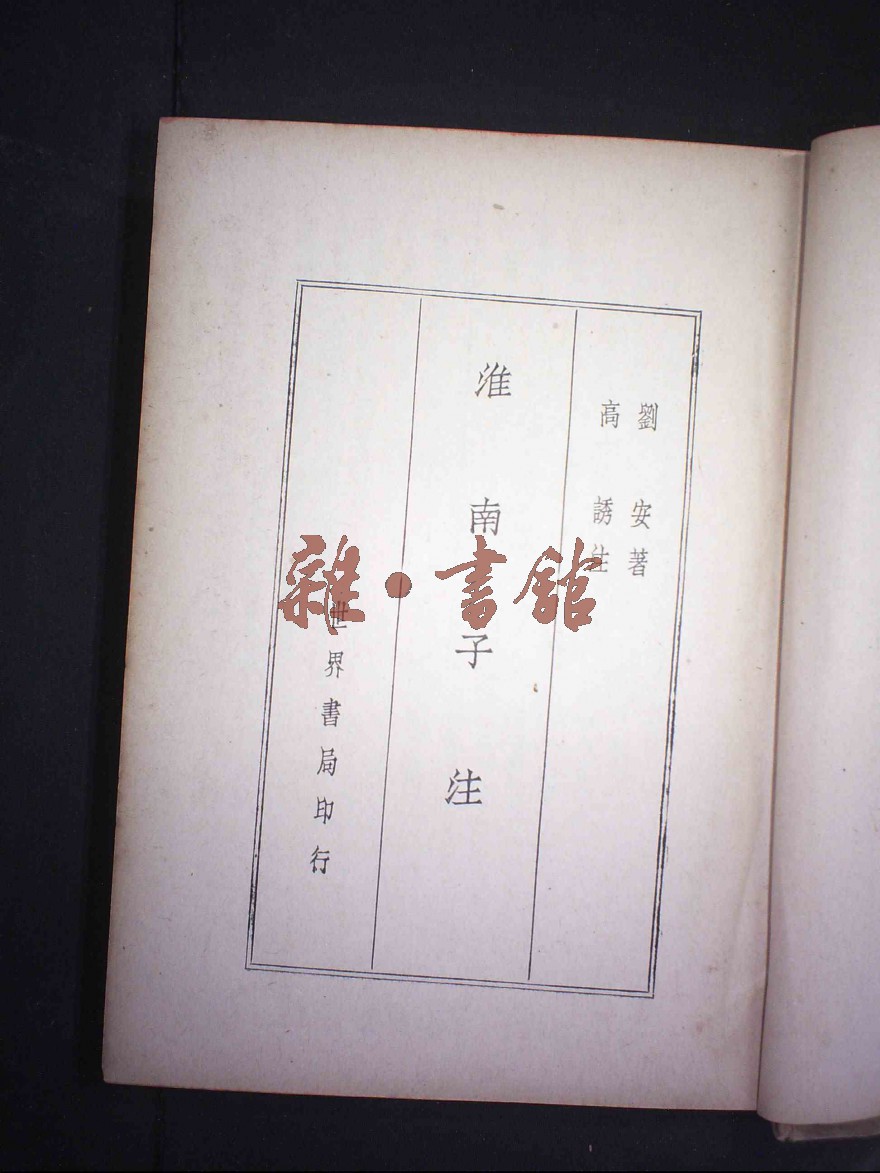 劉安著
高誘注
淮南子注
世界書局印行
雜·書館